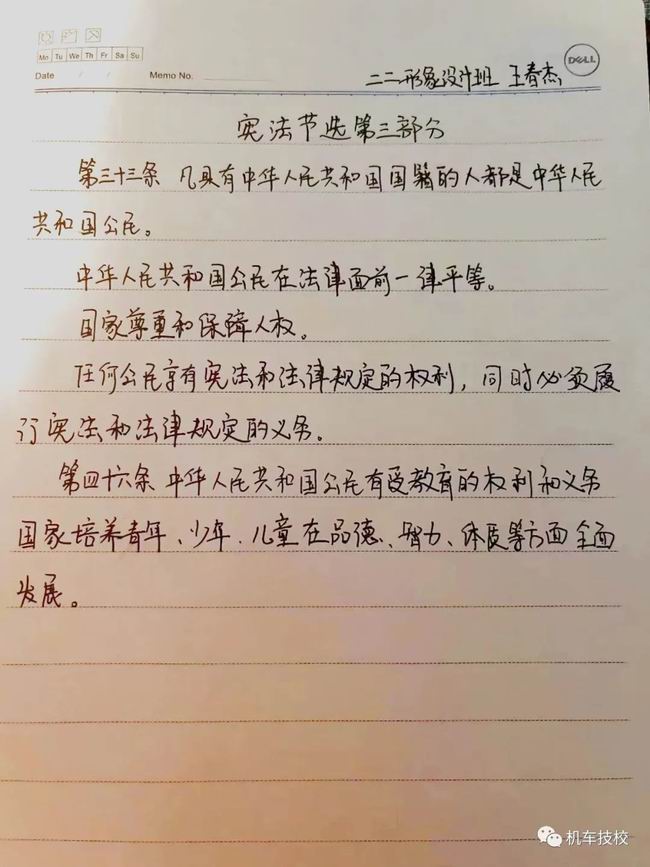 Mo Tu We Th Fr Sa Su
Date / / Memo No.
DELL
二二形象设计班 王春杰
宪法节选第三部分
第三十三条 凡具有中华人民共和国国籍的人都是中华人民
共和国公民。
中华人民共和国公民在法律面前一律平等。
国家尊重和保障人权。
任何公民享有宪法和法律规定的权利，同时必须履
行宪法和法律规定的义务。
第四十六条 中华人民共和国公民有受教育的权利和义务
国家培养青年、少年、儿童在品德、智力、体质等方面全面
发展。
机车技校